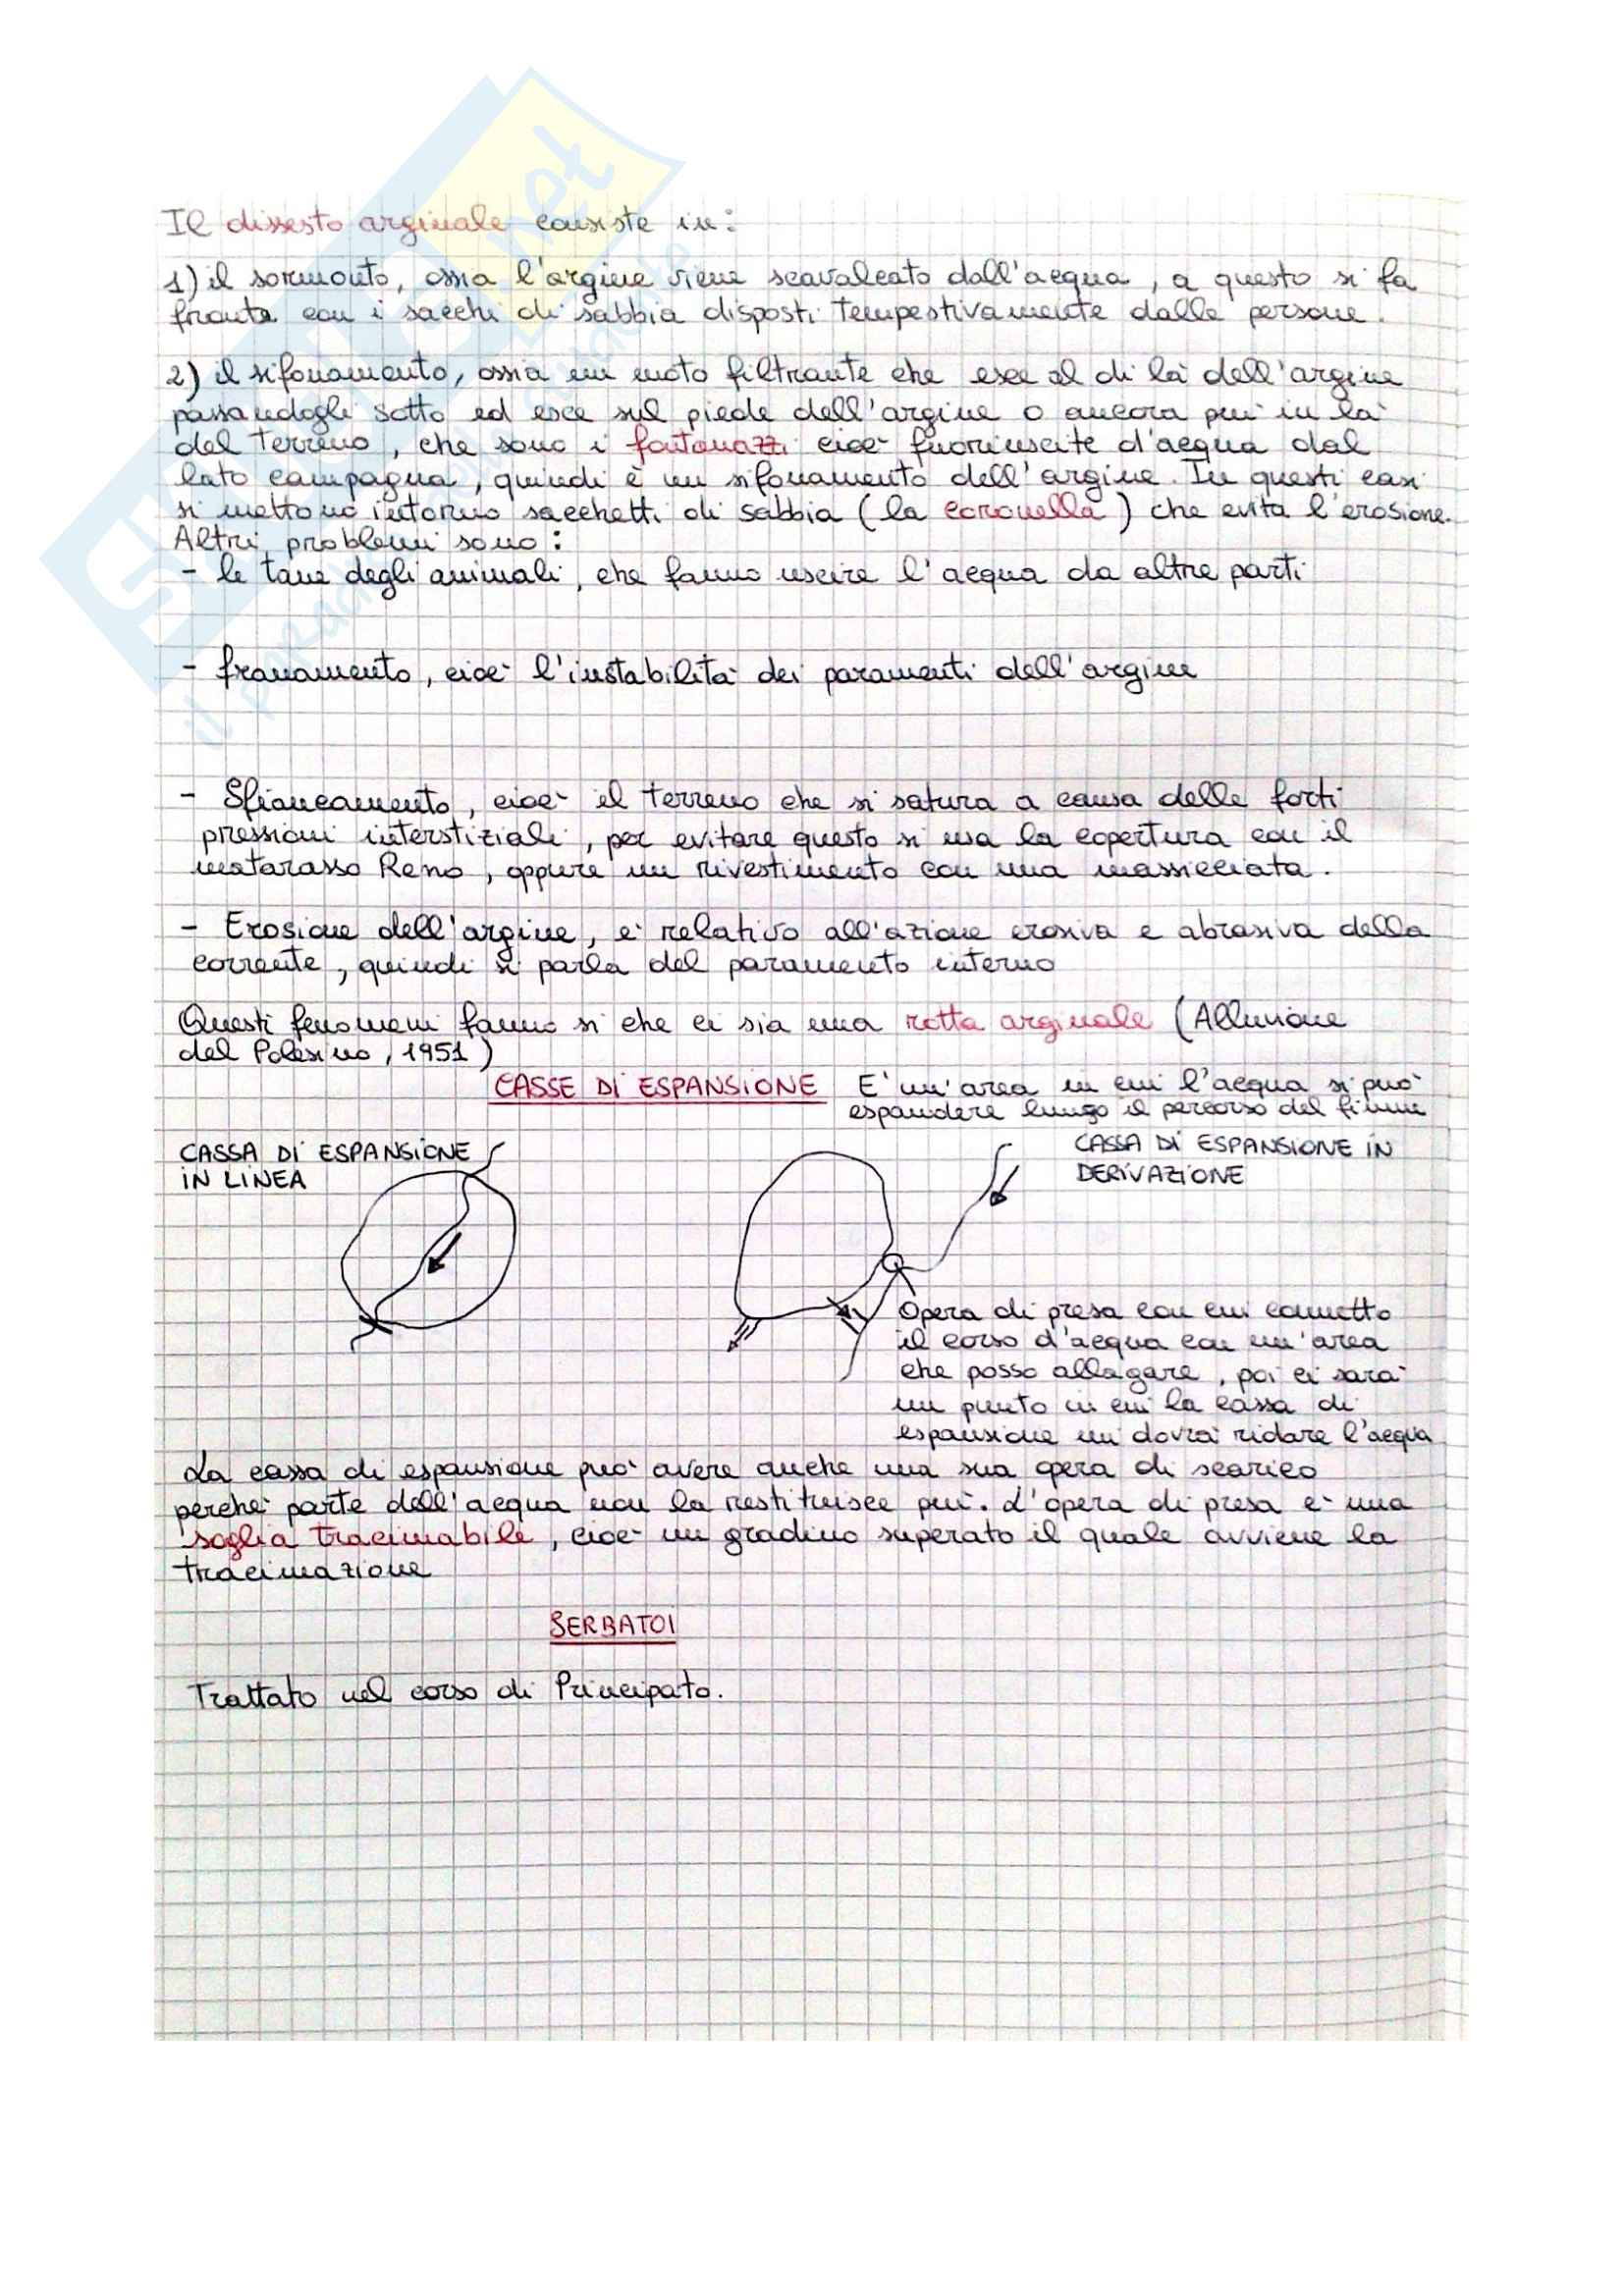 Il dissesto arginale consiste in:
1) il sormonto, ossia l'argine viene scavalcato dall'acqua, a questo si fa
fronte con i sacchi di sabbia disposti tempestivamente dalle persone.
2) il sifonamento, ossia un moto filtrante che esce al di là dell'argine
passandogli sotto ed esce sul piede dell'argine o ancora più in là
del terreno, che sono i fontanazzi cioè fuoriuscite d'acqua dal
lato campagna, quindi è un sifonamento dell'argine. In questi casi
si mettono intorno sacchetti di sabbia (la coronella) che evita l'erosione.
Altri problemi sono:
- le tane degli animali, che fanno uscire l'acqua da altre parti
- franamento, cioè l'instabilità dei paramenti dell'argine
- Sfiancamento, cioè il terreno che si satura a causa delle forti
pressioni interstiziali, per evitare questo si usa la copertura con il
matarasso Reno, oppure un rivestimento con una massicciata.
- Erosione dell'argine, è relativo all'azione erosiva e abrasiva della
corrente, quindi si parla del paramento interno
Questi fenomeni fanno sì che ci sia una rotta arginale (Alluvione
del Polesino, 1951)
CASSE DI ESPANSIONE E' un'area in cui l'acqua si può
espandere lungo il percorso del fiume
CASSA DI ESPANSIONE
IN LINEA
CASSA DI ESPANSIONE IN
DERIVAZIONE
Opera di presa con cui connetto
il corso d'acqua con un'area
che posso allagare, poi ci sarà
un punto in cui la cassa di
espansione mi dovrà ridare l'acqua
La cassa di espansione può avere anche una sua opera di scarico
perché parte dell'acqua non la restituisce più. L'opera di presa è una
soglia tracimabile, cioè un gradino superato il quale avviene la
tracimazione
SERBATOI
Trattato nel corso di Principato.